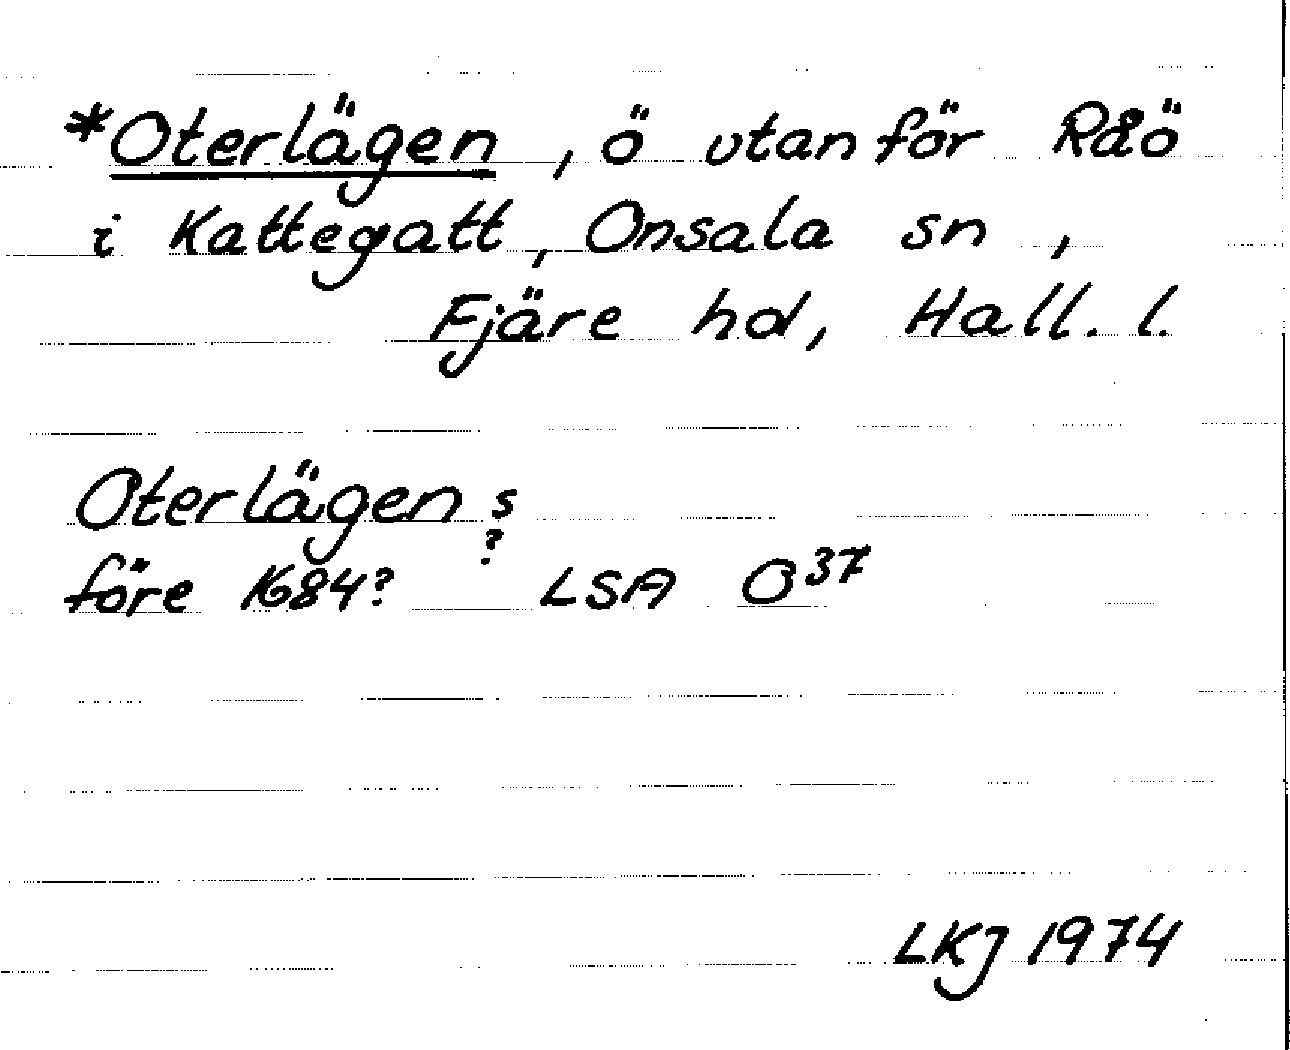 *Oterlägen, ö utanför Råö
i Kattegatt, Onsala sn,
Fjäre hd, Hall. l.
Oterlägen s
?
före 1684? LSA O37
LKJ 1974